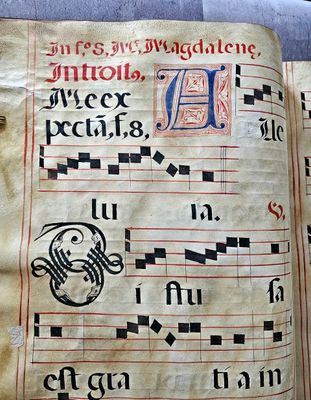 Magdalenę,
Introit9,
Me ex
pectã, f, 8, A lle
lu ia. V.
D i ffu sa
est gra ti a in